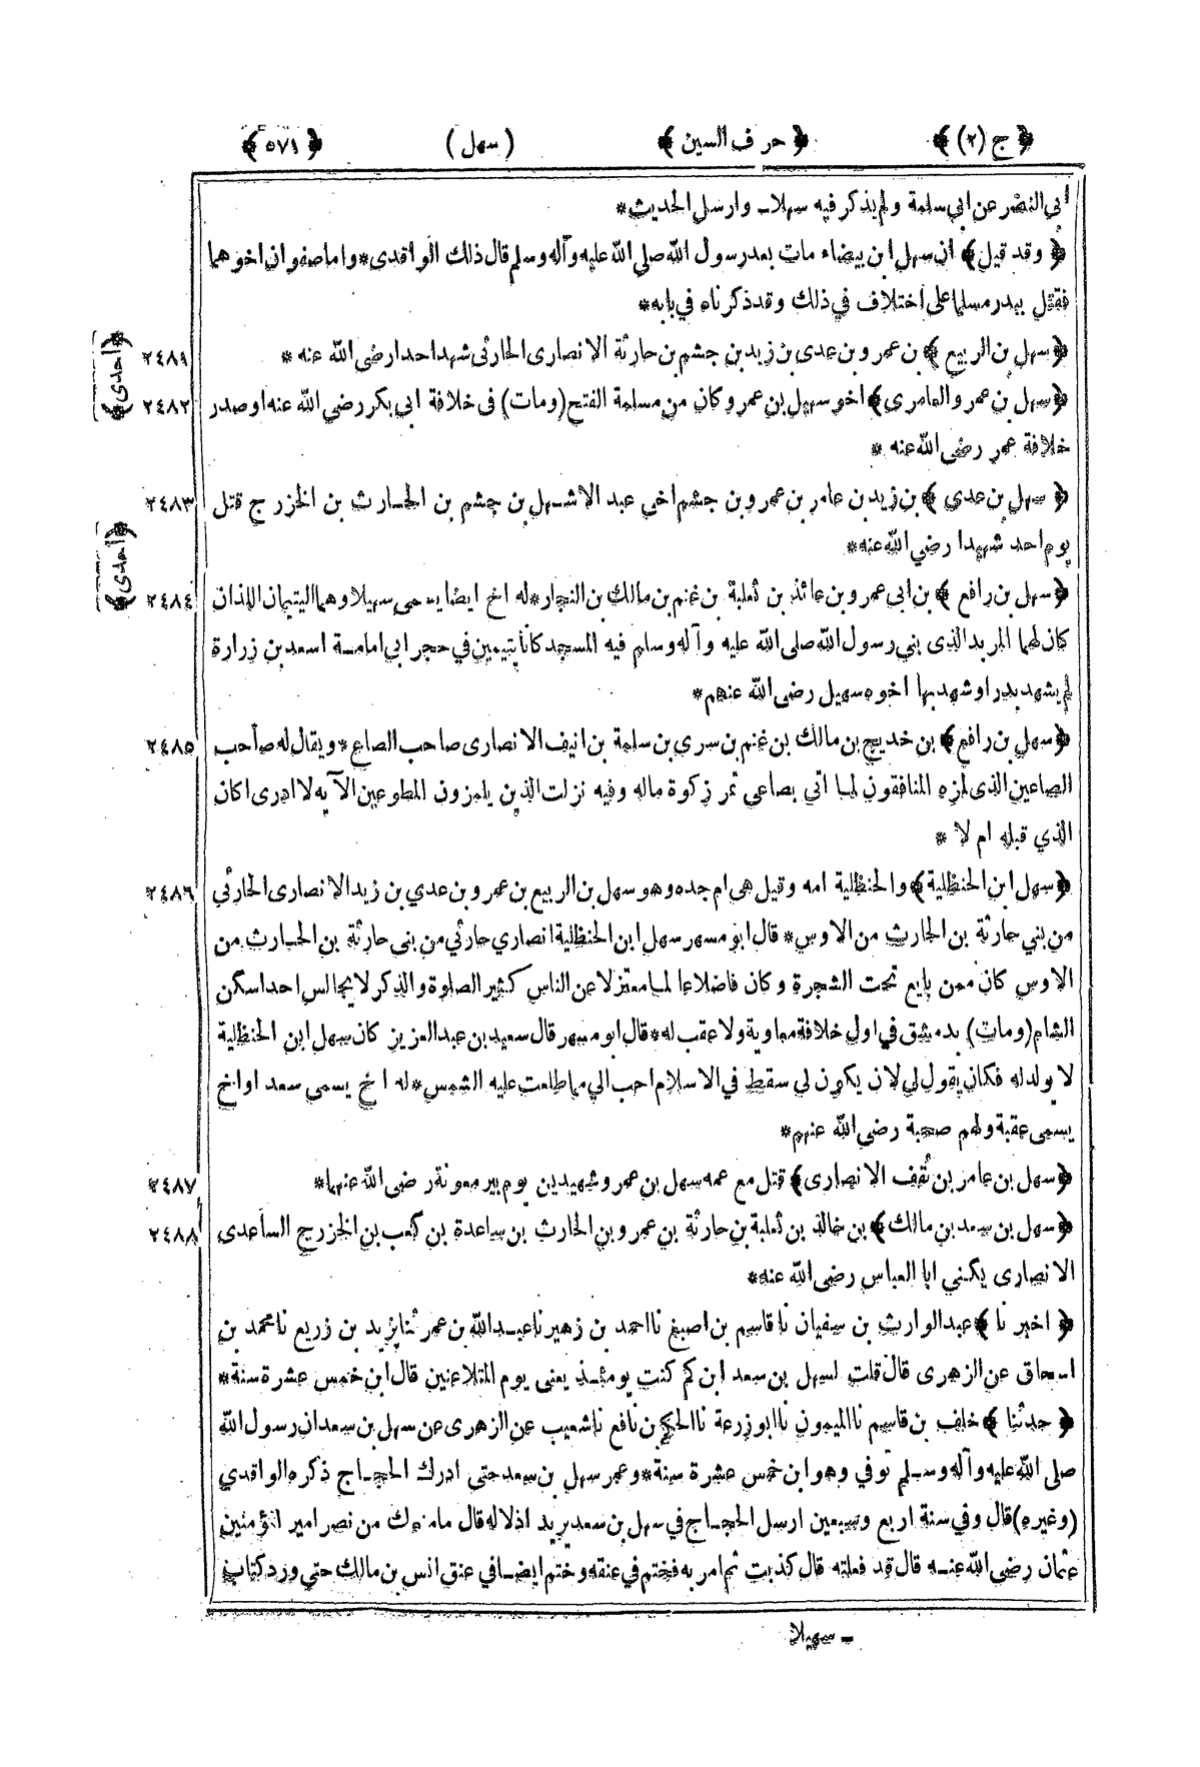 ﴿ ج (٢) ﴾ ﴿ حرف السين ﴾ (سهل) ﴿ ٥٧١ ﴾
ابي النضر عن ابي سلمة ولم يذكر فيه سهلا ـ وارسل الحديث*
﴿ وقد قيل ﴾ ان سهل ابن بيضاء مات بعد رسول الله صلى الله عليه وآله وسلم قال ذلك الواقدى* واما صفوان اخوهما
فقتل ببدر مسلما على اختلاف في ذلك وقد ذكرناه في بابه*
﴿ سهل بن الربيع ﴾ بن عمرو بن عدى بن زيد بن جشم بن حارثة الانصارى الحارثى شهد احدا رضى الله عنه * ٢٤٨١ ﴿احدى﴾
﴿ سهل بن عمرو العامرى ﴾ اخو سهيل بن عمرو وكان من مسلمة الفتح (ومات) فى خلافة ابى بكر رضي الله عنه او صدر ٢٤٨٢
خلافة عمر رضى الله عنه *
﴿ سهل بن عدي ﴾ بن زيد بن عامر بن عمرو بن جشم اخى عبد الاشهل بن جشم بن الحارث بن الخزرج قتل ٢٤٨٣
يوم احد شهيدا رضي الله عنه* ﴿احدى﴾
﴿ سهل بن رافع ﴾ بن ابى عمرو بن عائذ بن ثعلبة بن غنم بن مالك بن النجار* له اخ ايضا يسمى سهيلا وهما اليتيمان اللذان ٢٤٨٤
كان لهما المربد الذى بني رسول الله صلى الله عليه وآله وسلم فيه المسجد كانا يتيمين في حجر ابي امامة اسعد بن زرارة
لم يشهد بدرا وشهد بها اخوه سهيل رضى الله عنهم*
﴿ سهل بن رافع ﴾ بن خديج بن مالك بن غنم بن سرى بن سلمة بن انيف الانصارى صاحب الصاع* ويقال له صاحب ٢٤٨٥
الصاعين الذى لمزه المنافقون لما اتى بصاعى تمر زكوة ماله وفيه نزلت الذين يلمزون المطوعين الآيه لا ادرى اكان
الذي قبله ام لا *
﴿ سهل ابن الحنظلية ﴾ والحنظلية امه وقيل هى ام جده وهو سهل بن الربيع بن عمرو بن عدي بن زيد الانصارى الحارثي ٢٤٨٦
من بني حارثة بن الحارث من الاوس* قال ابو مسهر سهل ابن الحنظلية انصاري حارثي من بنى حارثة بن الحارث من
الاوس كان ممن بايع تحت الشجرة وكان فاضلا عالما معتزلا عن الناس كثير الصلوة والذكر لا يجالس احدا سكن
الشام (ومات) بدمشق في اول خلافة معاوية ولا عقب له* قال ابو مسهر قال سعيد بن عبد العزيز كان سهل ابن الحنظلية
لا يولد له فكان يقول لي لان يكون لي سقط في الاسلام احب الي مما طلعت عليه الشمس* له اخ يسمى سعد او اخ
يسمى عقبة ولهم صحبة رضى الله عنهم*
﴿ سهل بن عامر بن ثقف الانصارى ﴾ قتل مع عمه سهل بن عمرو شهيدين يوم بير معونة رضى الله عنهما* ٢٤٨٧
﴿ سهل بن سعد بن مالك ﴾ بن خالد بن ثعلبة بن حارثة بن عمرو بن الحارث بن ساعدة بن كعب بن الخزرج الساعدى ٢٤٨٨
الانصارى يكنى ابا العباس رضى الله عنه*
﴿ اخبرنا ﴾ عبد الوارث بن سفيان نا قاسم بن اصبغ نا احمد بن زهير نا عبد الله بن عمر ثنا يزيد بن زريع نا محمد بن
اسحاق عن الزهرى قال قلت لسهل بن سعد ابن كم كنت يومئذ يعنى يوم المتلاعنين قال ابن خمس عشرة سنة*
﴿ حدثنا ﴾ خلف بن قاسم نا الميمون نا ابو زرعة نا الحكم بن نافع نا شعيب عن الزهرى عن سهل بن سعد ان رسول الله
صلى الله عليه وآله وسلم توفي وهو ابن خمس عشرة سنة* وعمر سهل بن سعد حتى ادرك الحجاج ذكره الواقدي
(وغيره) قال وفي سنة اربع وسبعين ارسل الحجاج في سهل بن سعد يريد اذلاله قال ما منعك من نصر امير المؤمنين
عثمان رضى الله عنه قال قد فعلته قال كذبت ثم امر به فختم في عنقه وختم ايضا في عنق انس بن مالك حتى ورد كتاب
ـ سهيلا